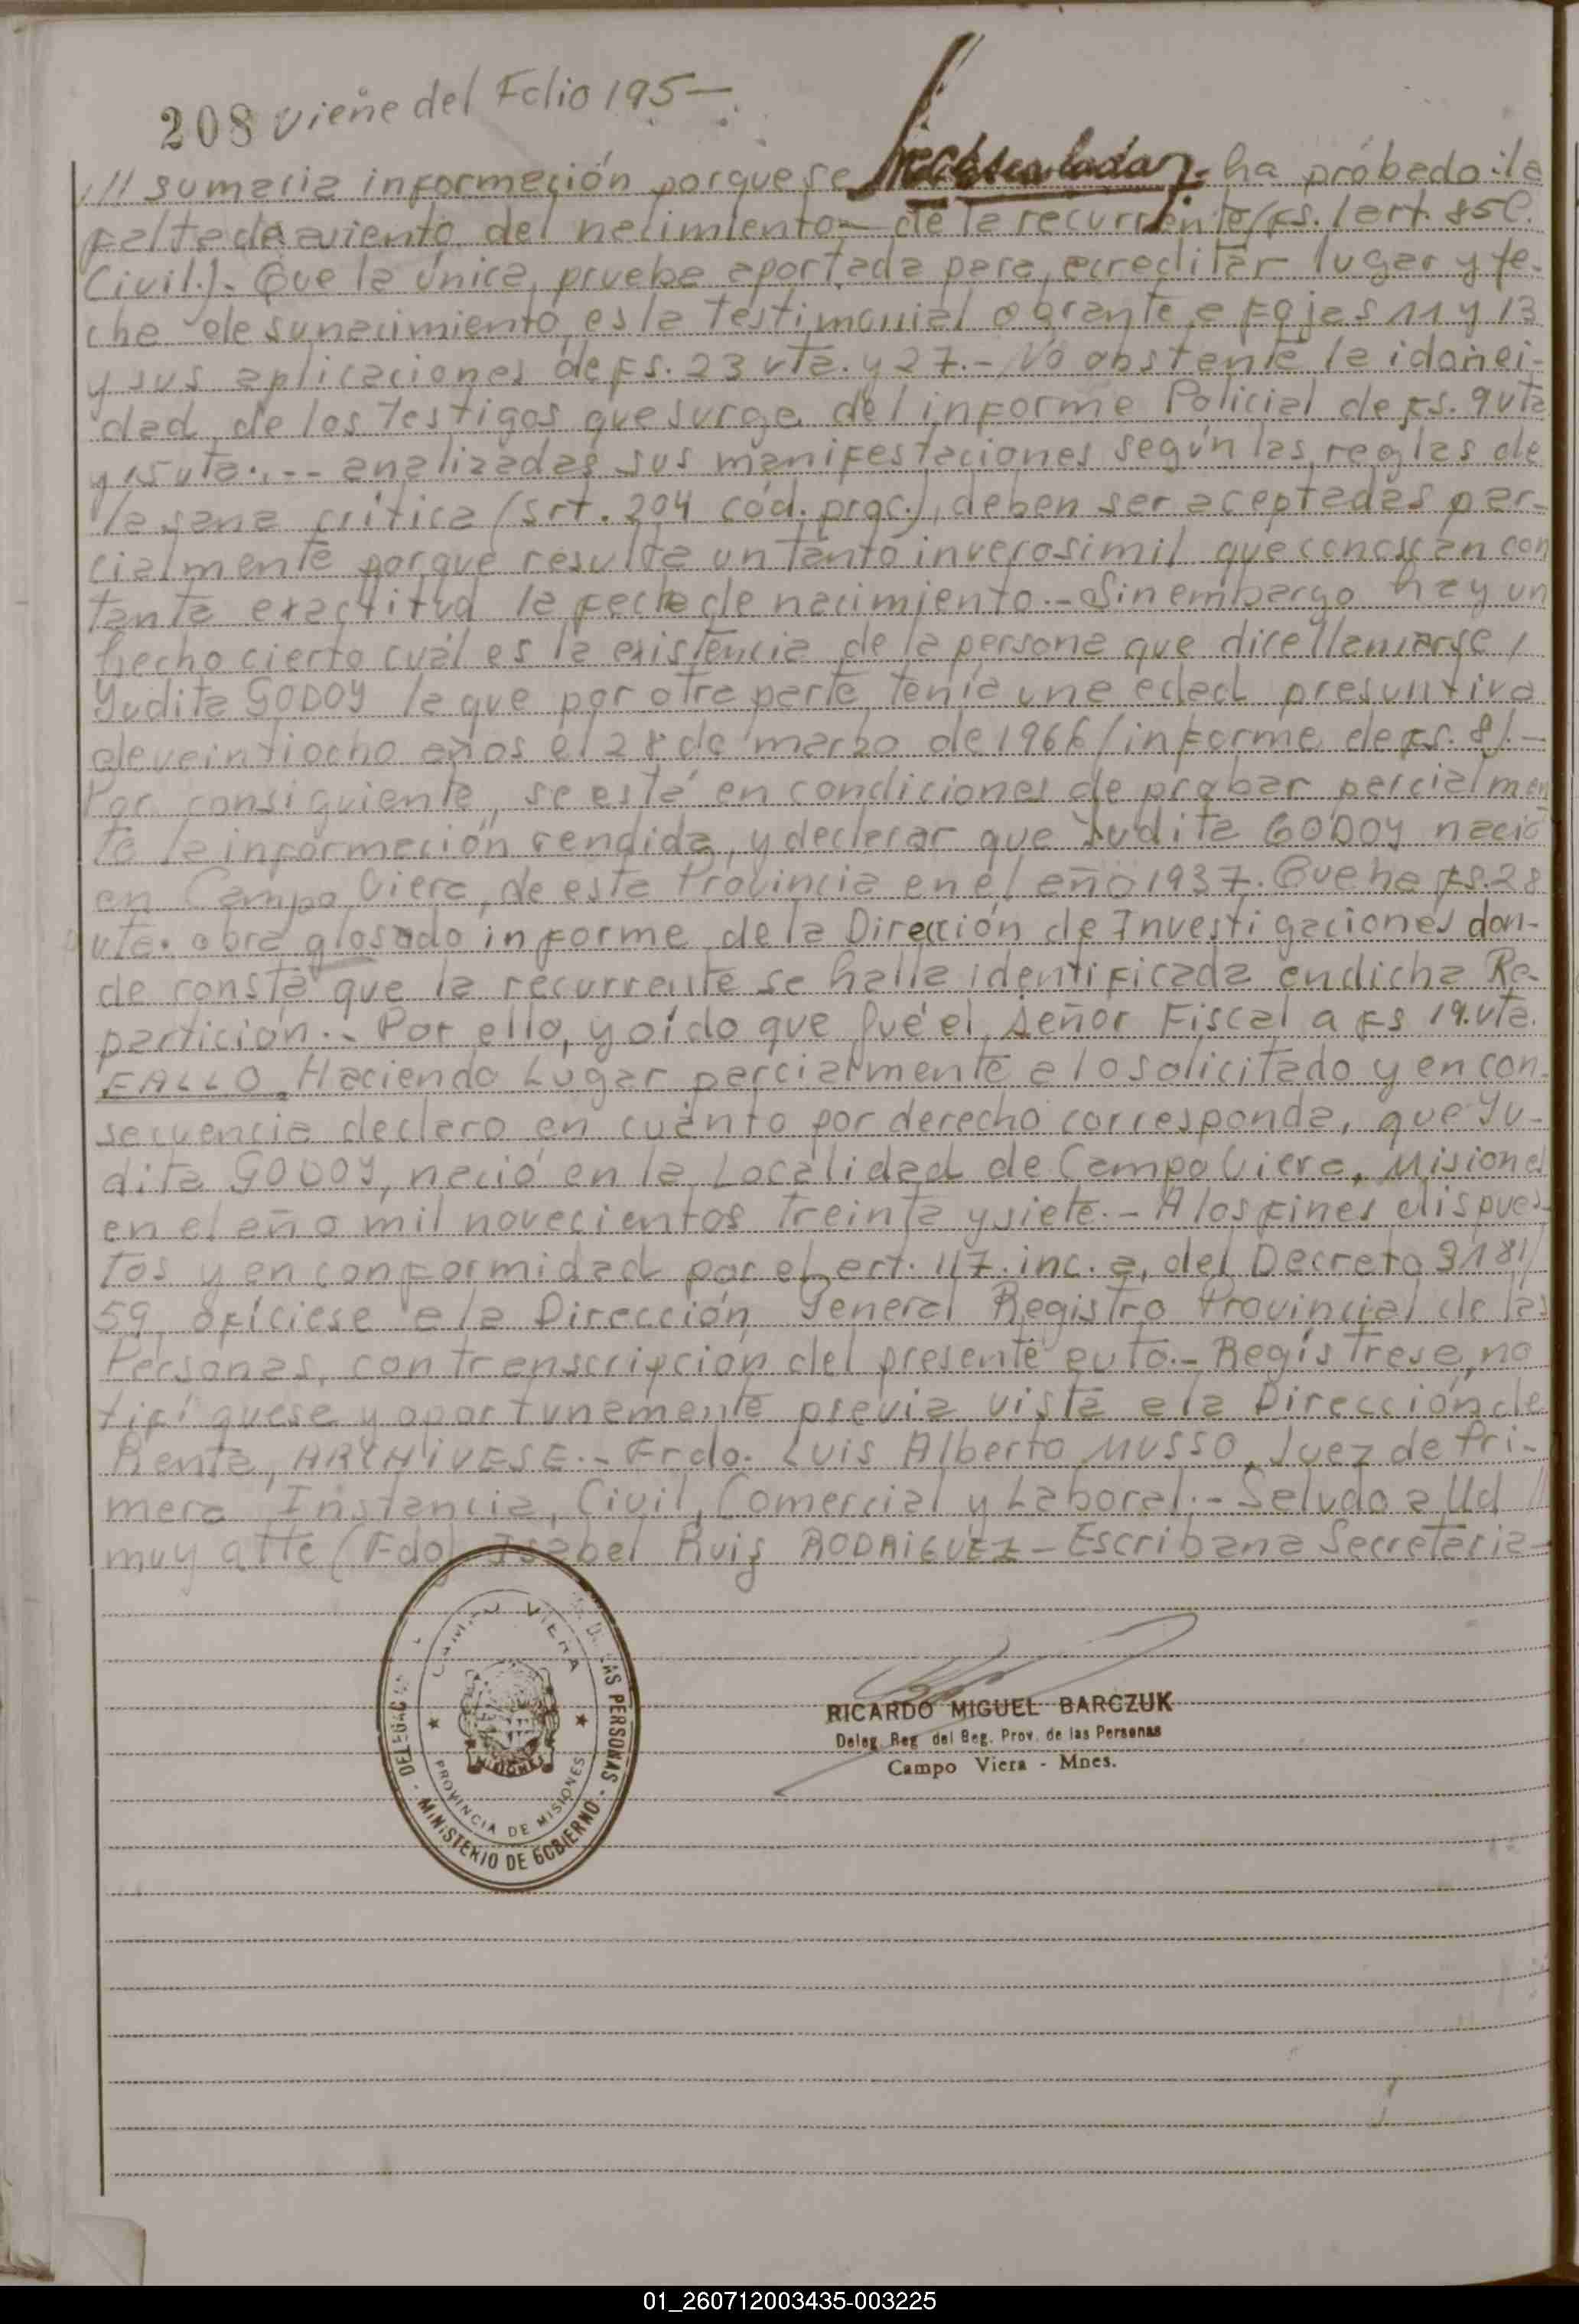 208 viene del Folio 195-.
/// sumaria información porque se ha probado: la
falta de asiento del nacimiento - de la recurrente (fs. 1 art. 85 C.
Civil.). Que la única prueba aportada para acreditar lugar y fe-
cha de su nacimiento es la Testimonial obrante a Fojas 11 y 13
y sus aplicaciones de fs. 23 vta. y 27.- No obstante la idonei-
dad de los Testigos que surge del informe Policial de fs. 9 vta
y 15 vta.,-- analizadas sus manifestaciones según las reglas de
la sana critica (srt. 204 cód. proc.), deben ser aceptadas par-
cialmente porque resulta un tanto inverosimil que conoscan con
tanta exactitud la fecha de nacimiento.- Sin embargo hay un
hecho cierto cuál es la existencia de la persona que dice llamarse,
Yudita GODOY la que por otra parte tenía una edad presuntiva
de veintiocho años el 28 de marzo de 1966 (informe de fs. 8).-
Por consiguiente, se está en condiciones de probar parcialmen
te la información rendida, y declarar que Yudita GODOY nació
en Campo Viera, de esta Provincia en el año 1937. Que ha fs. 28
vta. obra glosado informe de la Dirección de Investigaciones don-
de consta que la recurrente se halla identificada en dicha Re-
partición.- Por ello, y oído que fué el señor Fiscal a fs 19. vta.
FALLO. Haciendo Lugar parcialmente a lo solicitado y en con-
secuencia declaro en cuanto por derecho corresponda, que Yu-
dita GODOY, nació en la Localidad de Campo Viera, Misiones
en el año mil novecientos Treinta y siete.- A los fines dispues-
tos y en conformidad por el art. 117. inc. a, del Decreto 3181/
59, ofíciese a la Dirección General Registro Provincial de las
Personas, con transcripción del presente auto.- Registrese, no
tifíquese y oportunamente previa vista a la Dirección de
Renta, ARCHIVESE.- Frdo. Luis Alberto MUSSO, Juez de Pri-
mera Instancia, Civil, Comercial y Laboral.- Saludo a Ud //
muy atte (Fdo) Isabel Ruiz RODRIGUEZ - Escribana Secretaria-
CAMPO VIERA
DELEGAC LAS PERSONAS
PROVINCIA DE MISIONES
MINISTERIO DE GOBIERNO
RICARDO MIGUEL BARCZUK
Deleg. Reg. del Reg. Prov. de las Personas
Campo Viera - Mnes.
01_260712003435-003225